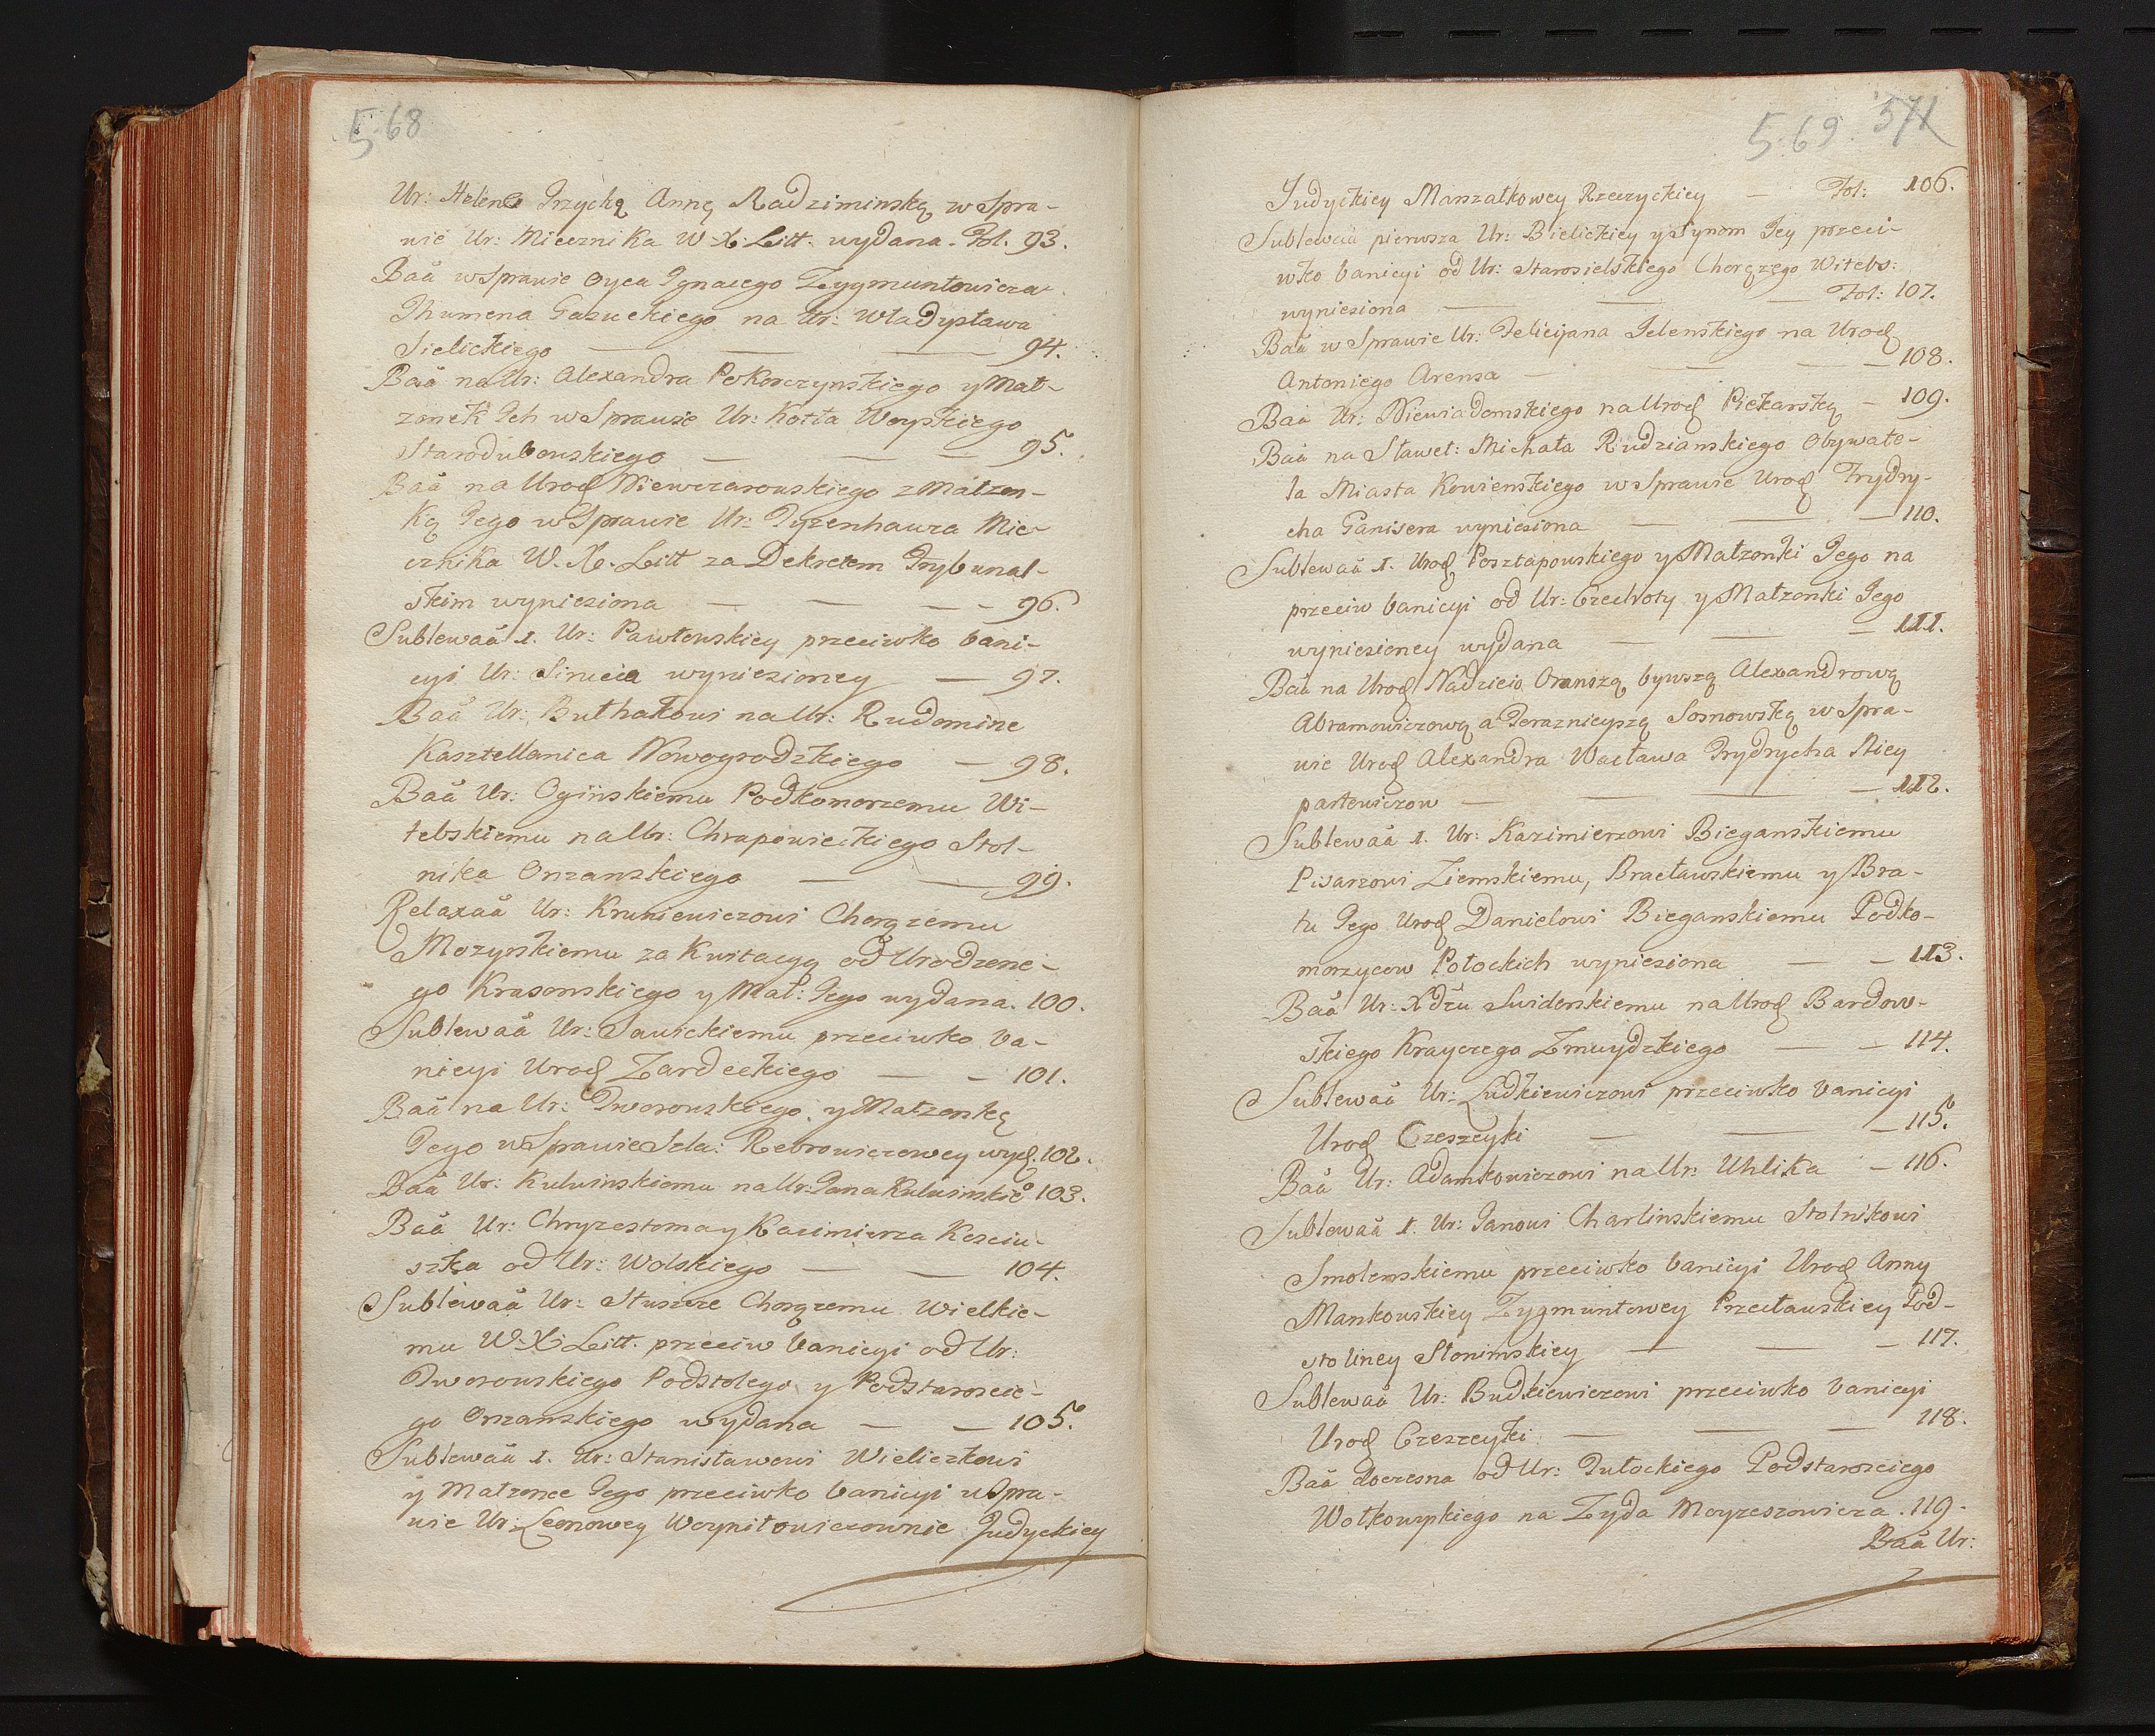 568
Ur: Helenę Grzycką Annę Radziminską w Spra-
wie Ur: Miecznika W. X. Litt. wydana. Fol. 93.
Baä w Sprawie Oyca Ignacego Zygmuntowicza
Ihumena Gazuckiego na Ur: Władysława
Sielickiego — — — 94.
Baä na Ur: Alexandra Pokorczynskiego y Mał-
zonek Ich w Sprawie Ur: Kotła Woyskiego
Starodubowskiego — — — 95.
Baä na Urod Niewczarowskiego z Małzon-
ką Jego w Sprawie Ur: Tyzenhauza Mie-
cznika W. X. Litt za Dekretem Trybunal-
skim wyniesiona — — — — 96.
Sublewaä 1. Ur: Pawłowskiey przeciwko bani-
cyi Ur: Sirucia wyniesioney — 97.
Baä Ur: Buthakowi na Ur: Rudomine
Kasztellanica Nowogrodzkiego — 98.
Baä Ur: Oginskiemu Podkomorzemu Wi-
tebskiemu na Ur: Chrapowickiego Stol-
nika Orszanskiego — — 99.
Relaxaä Ur: Kruniewiczowi Chorązemu
Mozyrskiemu za Kwitacyą od Urodzone-
go Krasowskiego y Mał: Jego wydana. 100.
Sublewaä Ur: Sawickiemu przeciwko ba-
nicyi Urod Zardeckiego — — 101.
Baä na Ur: Dworowskiego y Małzonkę
Jego w Sprawie Szla: Rebrowiczowey wyd. 102.
Baä Ur: Kulwinskiemu na Ur: Jana Kulwinskiẻ 103.
Baä Ur: Chryzostoma y Kazimierza Kosciu-
szka od Ur: Wolskiego — — 104.
Sublewaä Ur: Stuszce Chorązemu Wielkie-
mu W. X. Litt. przeciw banicyi od Ur:
Dworowskiego Podstolego y Podstaroscie-
go Orszanskiego wydana — — 105.
Sublewaä 1. Ur: Stanisławowi Wieliczkowi
y Małzonce Jego przeciwko banicyi w Spra-
wie Ur: Leonowey Woyniłowiczownie Judyckiey
569. 571
Judyckiey Marszałkowey Rzeczyckiey — Fol: 106.
Sublewaä pierwsza Ur: Bielickiey y Synom Jey przeci-
wko banicyi od Ur: Starosielskiego Chorązego Witebs:
wyniesiona — — — Fol: 107.
Baä w Sprawie Ur: Felicyana Jelenskiego na Urod
Antoniego Arensa — — — 108.
Baä Ur: Niewiadomskiego na Urod Piekarską — 109.
Baä na Sławet: Michała Rudzianskiego Obywate-
la Miasta Kowienskiego w Sprawie Urod Frydry-
cha Ganisera wyniesiona — — — 110.
Sublewaä 1. Urod Posztapowskiego y Małzonki Jego na
przeciw banicyi od Ur: Czechoty y Małzonki Jego
wyniesioney wydana — — — 111.
Baä na Urod Nadzieię Oranszą bywszą Alexandrową
Abramowiczową a Teraznieyszą Sosnowską w Spra-
wie Urod Alexandra Wacława Frydrycha Niey
partowiczow — — — 112.
Sublewaä 1. Ur: Kazimierzowi Bieganskiemu
Pisarzowi Ziemskiemu, Bracławskiemu y Bra-
tu Jego Urod Danielowi Bieganskiemu Podko-
morzycow Połockich wyniesiona — — 113.
Baä Ur: Xdzu Swiderskiemu na Urod Bardow-
skiego Krayczego Zmuydzkiego — — 114.
Sublewaä Ur: Ludkiewiczowi przeciwko banicyi
Urod Czeszeyki — — — 115.
Baä Ur: Adamkowiczowi na Ur: Uhlika — 116.
Sublewaä 1. Ur: Janowi Charlinskiemu Stolnikowi
Smolenskiemu przeciwko banicyi Urod Anny
Mankowskiey Zygmuntowey Przecławskiey Pod-
stoliney Słonimskiey — — — 117.
Sublewaä Ur: Budkiewiczowi przeciwko banicyi
Urod Czeszeyki — — — 118.
Baä doczesna od Ur: Tułockiego Podstarosciego
Wołkowyskiego na Zyda Moyzeszowicza. 119.
Baä Ur: